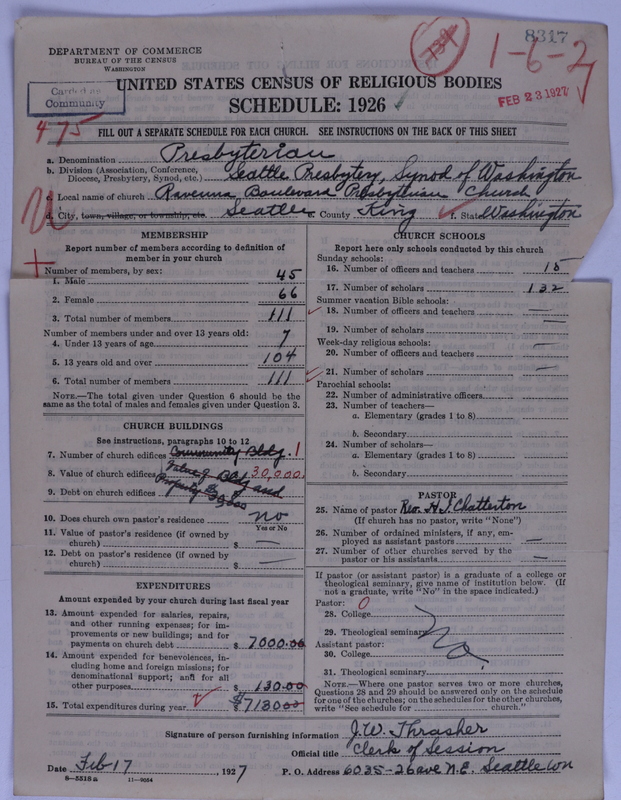 DEPARTMENT OF COMMERCE
BUREAU OF THE CENSUS
WASHINGTON
8317
139
1-6-2
Carded as
Community
UNITED STATES CENSUS OF RELIGIOUS BODIES
SCHEDULE: 1926
FEB 23 1927
475
FILL OUT A SEPARATE SCHEDULE FOR EACH CHURCH. SEE INSTRUCTIONS ON THE BACK OF THIS SHEET
a. Denomination Presbyterian
b. Division (Association, Conference, Diocese, Presbytery, Synod, etc.) Seattle Presbytery, Synod of Washington
c. Local name of church Ravenna Boulevard Presbyterian Church
d. City, town, village, or township, etc. Seattle e. County King f. State Washington
MEMBERSHIP
Report number of members according to definition of
member in your church
Number of members, by sex:
1. Male 45
2. Female 66
3. Total number of members 111
Number of members under and over 13 years old:
4. Under 13 years of age 7
5. 13 years old and over 104
6. Total number of members 111
NOTE.—The total given under Question 6 should be the
same as the total of males and females given under Question 3.
CHURCH BUILDINGS
See instructions, paragraphs 10 to 12
7. Number of church edifices Community Bldg. 1
8. Value of church edifices Value of Bldg and 30,000
9. Debt on church edifices Property $30,000
10. Does church own pastor's residence no
Yes or No
11. Value of pastor's residence (if owned by
church) $ —
12. Debt on pastor's residence (if owned by
church) $ —
EXPENDITURES
Amount expended by your church during last fiscal year
13. Amount expended for salaries, repairs,
and other running expenses; for im-
provements or new buildings; and for
payments on church debt $ 7000.00
14. Amount expended for benevolences, in-
cluding home and foreign missions; for
denominational support; and for all
other purposes $ 130.00
15. Total expenditures during year $ $7130.00
CHURCH SCHOOLS
Report here only schools conducted by this church
Sunday schools:
16. Number of officers and teachers 15
17. Number of scholars 132
Summer vacation Bible schools:
18. Number of officers and teachers —
19. Number of scholars —
Week-day religious schools:
20. Number of officers and teachers —
21. Number of scholars —
Parochial schools:
22. Number of administrative officers
23. Number of teachers—
a. Elementary (grades 1 to 8)
b. Secondary
24. Number of scholars—
a. Elementary (grades 1 to 8)
b. Secondary
PASTOR
25. Name of pastor Rev. H. J. Chatterton
(If church has no pastor, write "None")
26. Number of ordained ministers, if any, em-
ployed as assistant pastors —
27. Number of other churches served by the
pastor or his assistants —
If pastor (or assistant pastor) is a graduate of a college or
theological seminary, give name of institution below. (If
not a graduate, write "No" in the space indicated.)
Pastor: 0
28. College
29. Theological seminary No.
Assistant pastor:
30. College
31. Theological seminary
NOTE.—Where one pastor serves two or more churches,
Questions 28 and 29 should be answered only on the schedule
for one of the churches; on the schedules for the other churches,
write "See schedule for church."
Signature of person furnishing information J.W. Thrasher
Official title Clerk of Session
Date Feb-17, 1927 P. O. Address 6035-26 ave N.E. Seattle Wn
8-5518a 11-9054